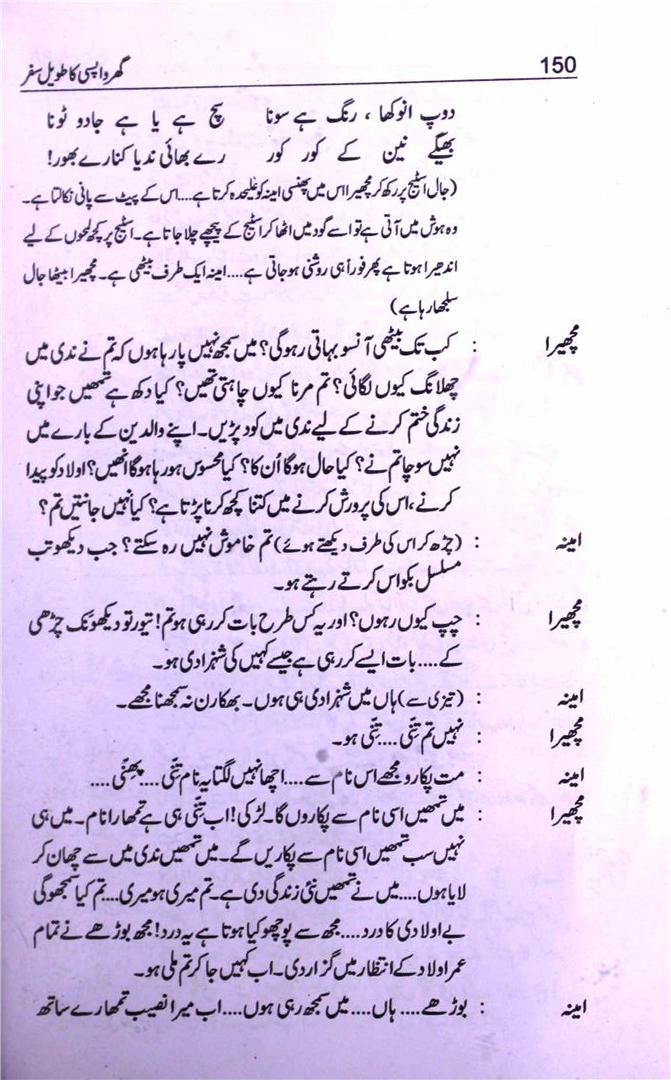 150 گھر واپسی کا طویل سفر
دوپ انوکھا ، رنگ ہے سونا سچ ہے یا ہے جادو ٹونا
بھیگے نین کے کور کور رے بھائی ندیا کنارے بھور!
(جال اسٹیج پر رکھ کر مچھیرا اس میں پھنسی امینہ کو علیٰحدہ کرتا ہے....اس کے پیٹ سے پانی نکالتا ہے۔
وہ ہوش میں آتی ہے تو اسے گود میں اٹھا کر اسٹیج کے پیچھے چلا جاتا ہے۔ اسٹیج پر کچھ لمحوں کے لیے
اندھیرا ہوتا ہے پھر فوراً ہی روشنی ہو جاتی ہے....امینہ ایک طرف بیٹھی ہے۔ مچھیرا بیٹھا جال
سلجھا رہا ہے)
مچھیرا : کب تک بیٹھی آنسو بہاتی رہو گی؟ میں سمجھ نہیں پا رہا ہوں کہ تم نے ندی میں
چھلانگ کیوں لگائی؟ تم مرنا کیوں چاہتی تھیں؟ کیا دکھ ہے تمھیں جو اپنی
زندگی ختم کرنے کے لیے ندی میں کود پڑیں۔ اپنے والدین کے بارے میں
نہیں سوچا تم نے؟ کیا حال ہوگا اُن کا؟ کیا محسوس ہو رہا ہوگا انھیں؟ اولاد کو پیدا
کرنے، اس کی پرورش کرنے میں کتنا کچھ کرنا پڑتا ہے؟ کیا نہیں جانتیں تم؟
امینہ : (چڑھ کر اس کی طرف دیکھتے ہوئے) تم خاموش نہیں رہ سکتے؟ جب دیکھو تب
مسلسل بکواس کرتے رہتے ہو۔
مچھیرا : چپ کیوں رہوں؟ اور یہ کس طرح بات کر رہی ہو تم! تیور تو دیکھو نک چڑھی
کے....بات ایسے کر رہی ہے جیسے کہیں کی شہزادی ہو۔
امینہ : (تیزی سے) ہاں میں شہزادی ہی ہوں۔ بھکارن نہ سمجھنا مجھے۔
مچھیرا : نہیں تم تنّی....تنّی ہو۔
امینہ : مت پکارو مجھے اس نام سے....اچھا نہیں لگتا یہ نام تنّی....پھنّی....
مچھیرا : میں تمھیں اسی نام سے پکاروں گا۔ لڑکی! اب تنّی ہی ہے تمھارا نام۔ میں ہی
نہیں سب تمھیں اسی نام سے پکاریں گے۔ میں تمھیں ندی میں سے چھان کر
لایا ہوں....میں نے تمھیں نئی زندگی دی ہے۔ تم میری ہو میری....تم کیا سمجھو گی
بے اولادی کا درد....مجھ سے پوچھو کیا ہوتا ہے یہ درد! مجھ بوڑھے نے تمام
عمر اولاد کے انتظار میں گزار دی۔ اب کہیں جا کر تم ملی ہو۔
امینہ : بوڑھے....ہاں....میں سمجھ رہی ہوں....اب میرا نصیب تمھارے ساتھ